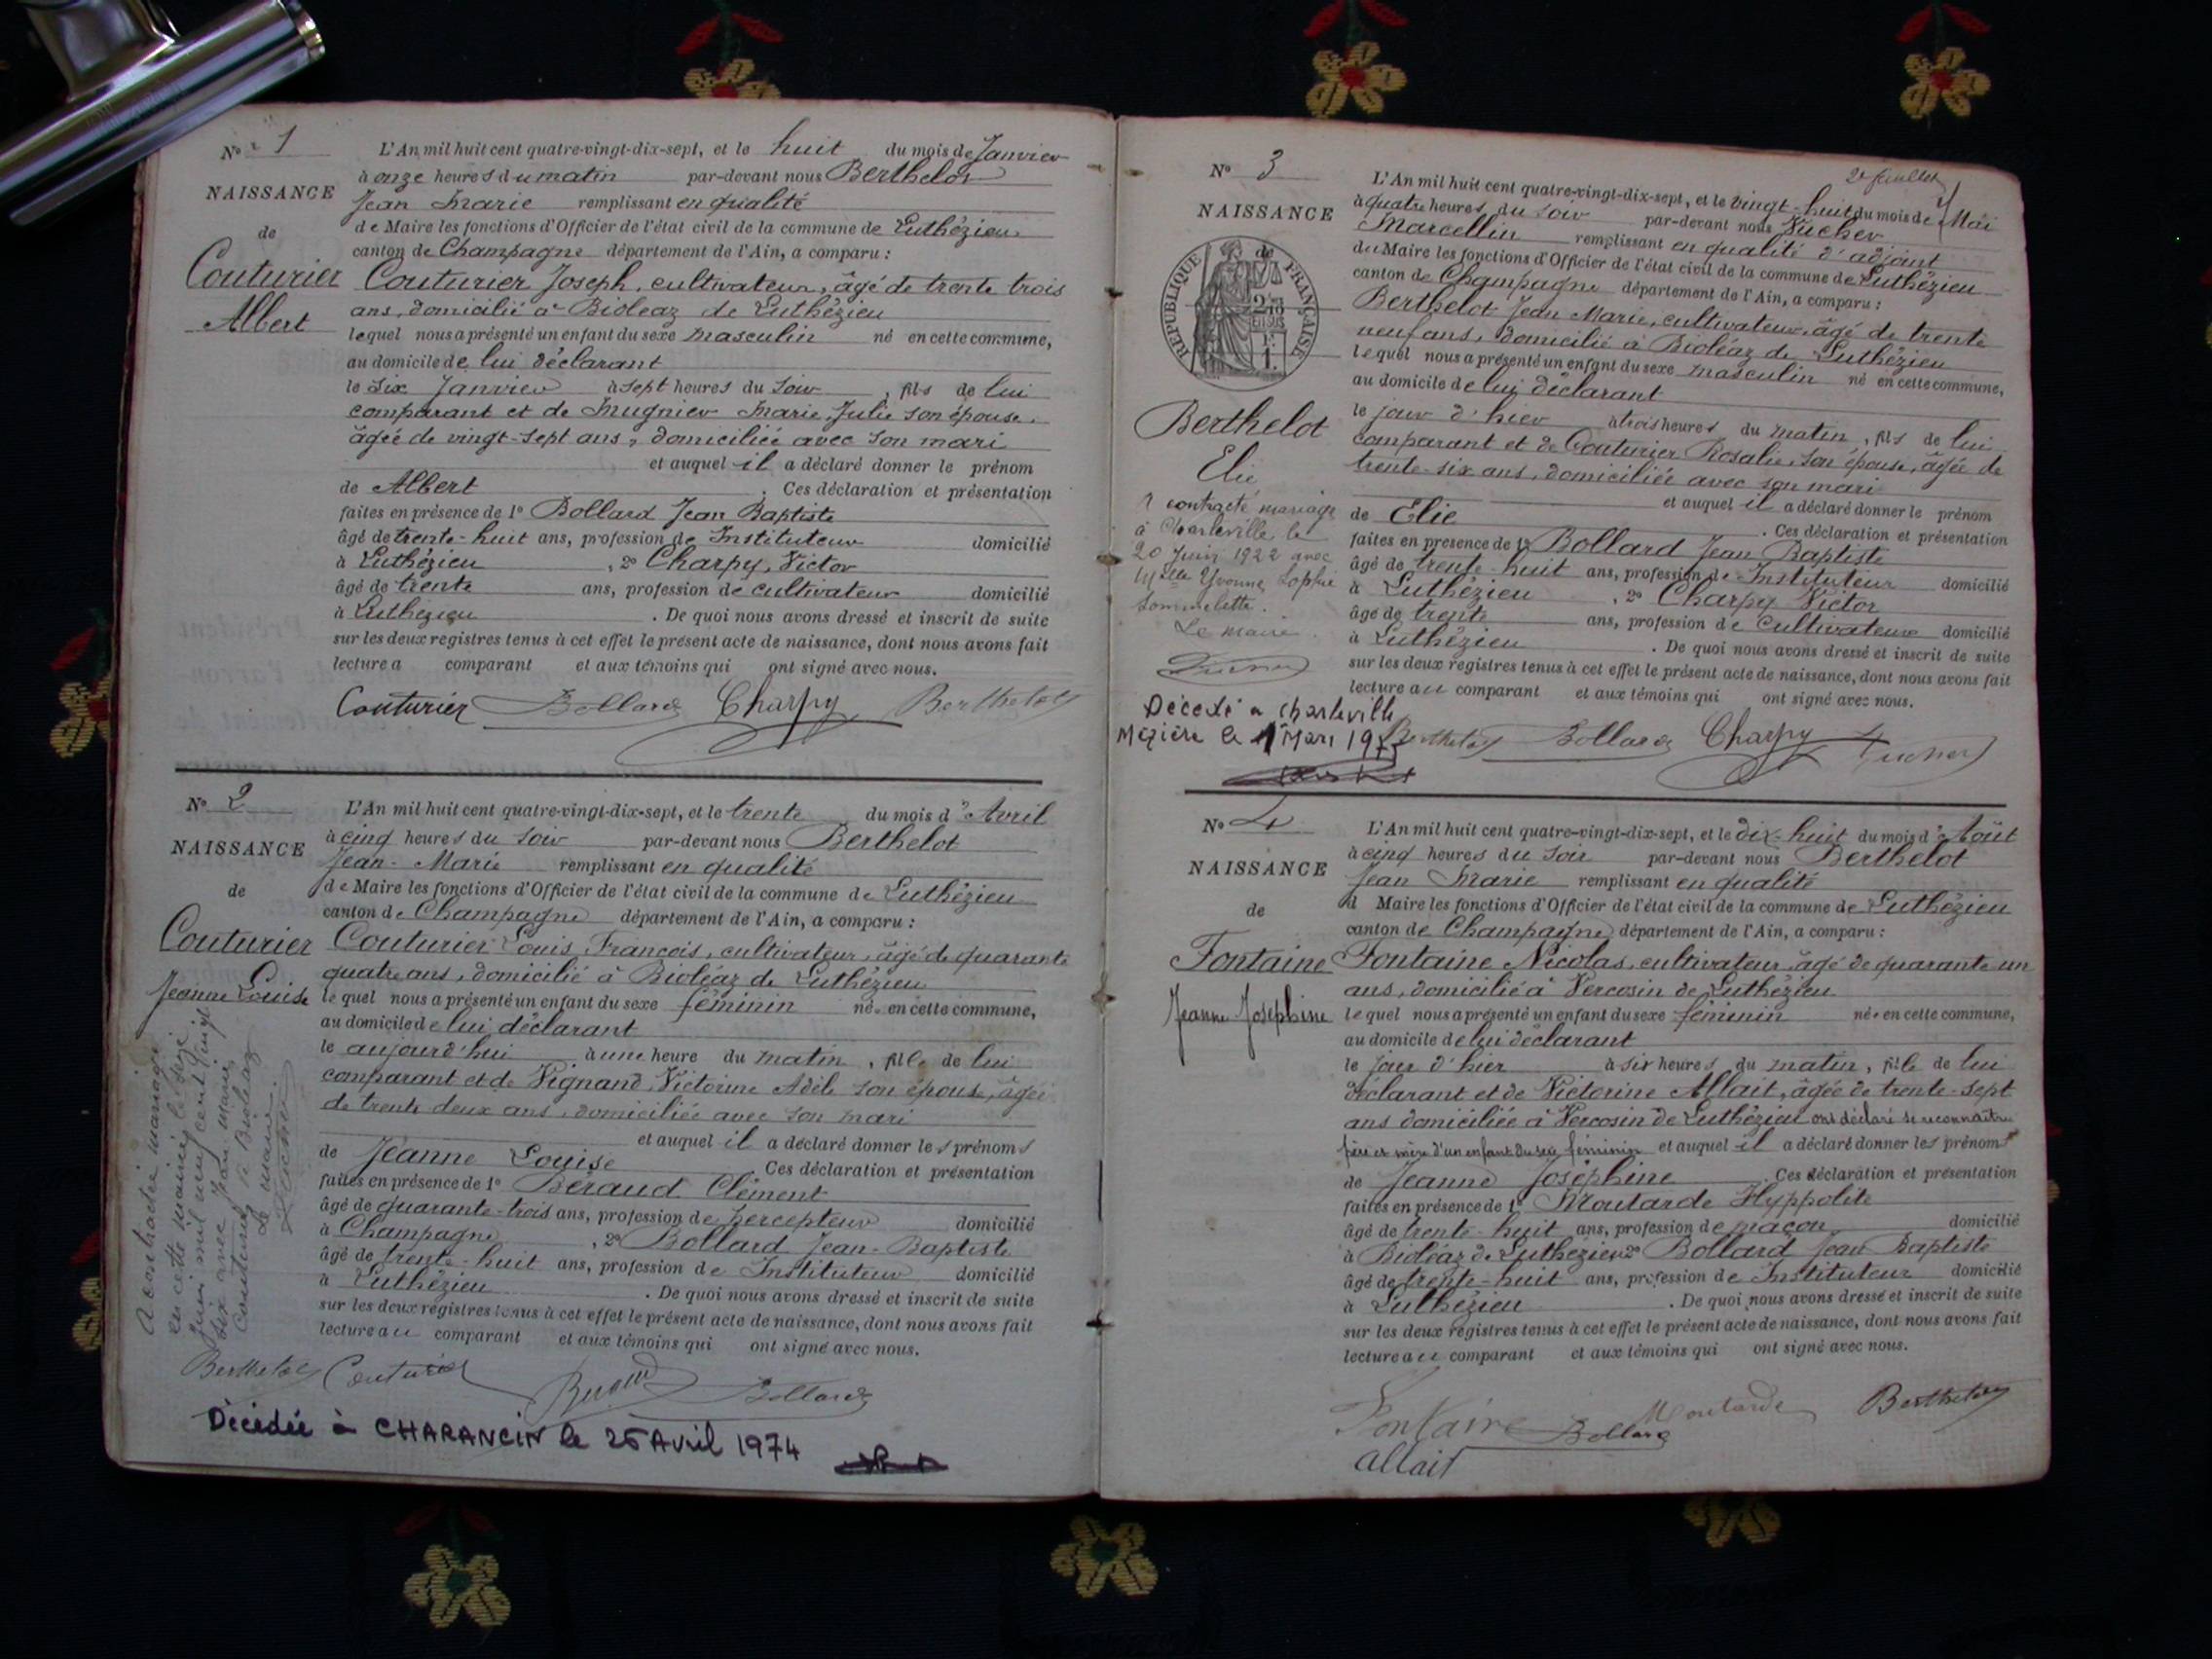 N° 1
NAISSANCE
de
Couturier
Albert
L'An mil huit cent quatre-vingt-dix-sept, et le huit du mois de Janvier
à onze heures du matin par-devant nous Berthelot
Jean Marie remplissant en qualité
de Maire les fonctions d'Officier de l'état civil de la commune de Luthézieu
canton de Champagne département de l'Ain, a comparu :
Couturier Joseph, cultivateur, âgé de trente trois
ans, domicilié à Bioleaz de Luthézieu
lequel nous a présenté un enfant du sexe masculin né en cette commune,
au domicile de lui déclarant
le six Janvier à sept heures du soir, fils de lui
comparant et de Mugnier Marie Julie son épouse,
âgée de vingt-sept ans, domiciliée avec son mari
et auquel il a déclaré donner le prénom
de Albert. Ces déclaration et présentation
faites en présence de 1° Bollard Jean Baptiste
âgé de trente-huit ans, profession de Instituteur domicilié
à Luthézieu, 2° Charpy, Victor
âgé de trente ans, profession de cultivateur domicilié
à Luthézieu. De quoi nous avons dressé et inscrit de suite
sur les deux registres tenus à cet effet le présent acte de naissance, dont nous avons fait
lecture a comparant et aux témoins qui ont signé avec nous.
Couturier Bollard Charpy Berthelot
N° 2
NAISSANCE
de
Couturier
Jeanne Louise
A contracté mariage
en cette mairie le seize
Juin mil neuf cent vingt
six avec Jean Marie
Couturier de Bioléaz
Le maire
L'An mil huit cent quatre-vingt-dix-sept, et le trente du mois d'Avril
à cinq heures du soir par-devant nous Berthelot
Jean-Marie remplissant en qualité
de Maire les fonctions d'Officier de l'état civil de la commune de Luthézieu
canton de Champagne département de l'Ain, a comparu :
Couturier Louis François, cultivateur, âgé de quarante
quatre ans, domicilié à Bioléaz de Luthézieu
lequel nous a présenté un enfant du sexe féminin née en cette commune,
au domicile de lui déclarant
le aujourd'hui à une heure du matin, fille de lui
comparant et de Vignand Victorine Adèle son épouse, âgée
de trente deux ans, domiciliée avec son mari
et auquel il a déclaré donner les prénoms
de Jeanne Louise Ces déclaration et présentation
faites en présence de 1° Béraud Clément
âgé de quarante-trois ans, profession de percepteur domicilié
à Champagne, 2° Bollard Jean-Baptiste
âgé de trente-huit ans, profession de Instituteur domicilié
à Luthézieu. De quoi nous avons dressé et inscrit de suite
sur les deux registres tenus à cet effet le présent acte de naissance, dont nous avons fait
lecture au comparant et aux témoins qui ont signé avec nous.
Berthelot Couturier Béraud Bollard
Décédée à CHARANCIN le 25 Avril 1974
2e feuillet
N° 3
NAISSANCE
de
RÉPUBLIQUE FRANÇAISE
Berthelot
Elie
A contracté mariage
à Charleville le
20 Juin 1922 avec
Melle Yvonne Sophie
Sommelette.
Le maire
Décédé à Charleville
Mézière le 1 Mars 197
L'An mil huit cent quatre-vingt-dix-sept, et le vingt-huit du mois de Mai
à quatre heures du soir par-devant nous Vucher
Marcellin remplissant en qualité d'adjoint
du Maire les fonctions d'Officier de l'état civil de la commune de Luthézieu
canton de Champagne département de l'Ain, a comparu :
Berthelot Jean Marie, cultivateur, âgé de trente
neuf ans, domicilié à Bioléaz de Luthézieu
lequel nous a présenté un enfant du sexe masculin né en cette commune,
au domicile de lui déclarant
le jour d'hier à trois heures du matin, fils de lui
comparant et de Couturier Rosalie, son épouse, âgée de
trente-six ans, domiciliée avec son mari
et auquel il a déclaré donner le prénom
de Elie. Ces déclaration et présentation
faites en présence de 1° Bollard Jean Baptiste
âgé de trente-huit ans, profession de Instituteur domicilié
à Luthézieu, 2° Charpy Victor
âgé de trente ans, profession de cultivateur domicilié
à Luthézieu. De quoi nous avons dressé et inscrit de suite
sur les deux registres tenus à cet effet le présent acte de naissance, dont nous avons fait
lecture au comparant et aux témoins qui ont signé avec nous.
Berthelot Bollard Charpy Vucher
N° 4
NAISSANCE
de
Fontaine
Jeanne Joséphine
L'An mil huit cent quatre-vingt-dix-sept, et le dix-huit du mois d'Août
à cinq heures du soir par-devant nous Berthelot
Jean Marie remplissant en qualité
d Maire les fonctions d'Officier de l'état civil de la commune de Luthézieu
canton de Champagne département de l'Ain, a comparu :
Fontaine Nicolas, cultivateur, âgé de quarante un
ans, domicilié à Vercosin de Luthézieu
lequel nous a présenté un enfant du sexe féminin née en cette commune,
au domicile de lui déclarant
le jour d'hier à six heures du matin, fille de lui
déclarant et de Victorine Allait, âgée de trente-sept
ans domiciliée à Vercosin de Luthézieu ont déclaré se reconnaître
père et mère d'un enfant du sexe féminin et auquel il a déclaré donner les prénoms
de Jeanne Joséphine. Ces déclaration et présentation
faites en présence de 1° Moutarde Hyppolite
âgé de trente-huit ans, profession de maçon domicilié
à Bioléaz de Luthézieu 2° Bollard Jean Baptiste
âgé de trente-huit ans, profession de Instituteur domicilié
à Luthézieu. De quoi nous avons dressé et inscrit de suite
sur les deux registres tenus à cet effet le présent acte de naissance, dont nous avons fait
lecture au comparant et aux témoins qui ont signé avec nous.
Fontaine Bollard Moutarde Berthelot
Allait